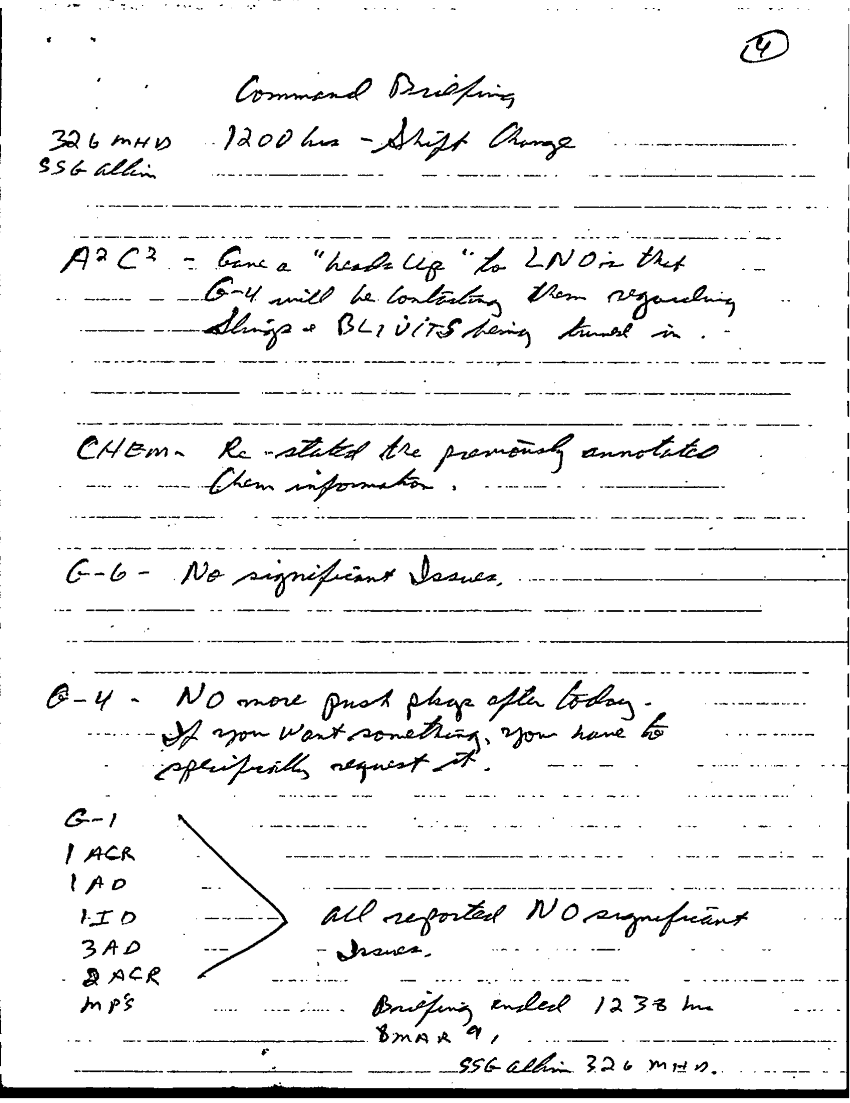 4
Command Briefing
326 MHD 1200 hrs - Shift Change
SSG
A²C² - Gave a "heads Up" to LNOs that
G-4 will be contacting them regarding
Slings & BLIVITS being turned in.
CHEM- Re-stated the previously annotated
Chem information.
G-6 - No significant Issues.
G-4 - NO more push pkgs after today.
If you want something, you have to
specifically request it.
G-1
1 ACR
1 AD
1 ID all reported NO significant
3 AD Issues.
2 ACR
MP's Briefing ended 1238 hrs
8 MAR 91
SSG 326 MHD.